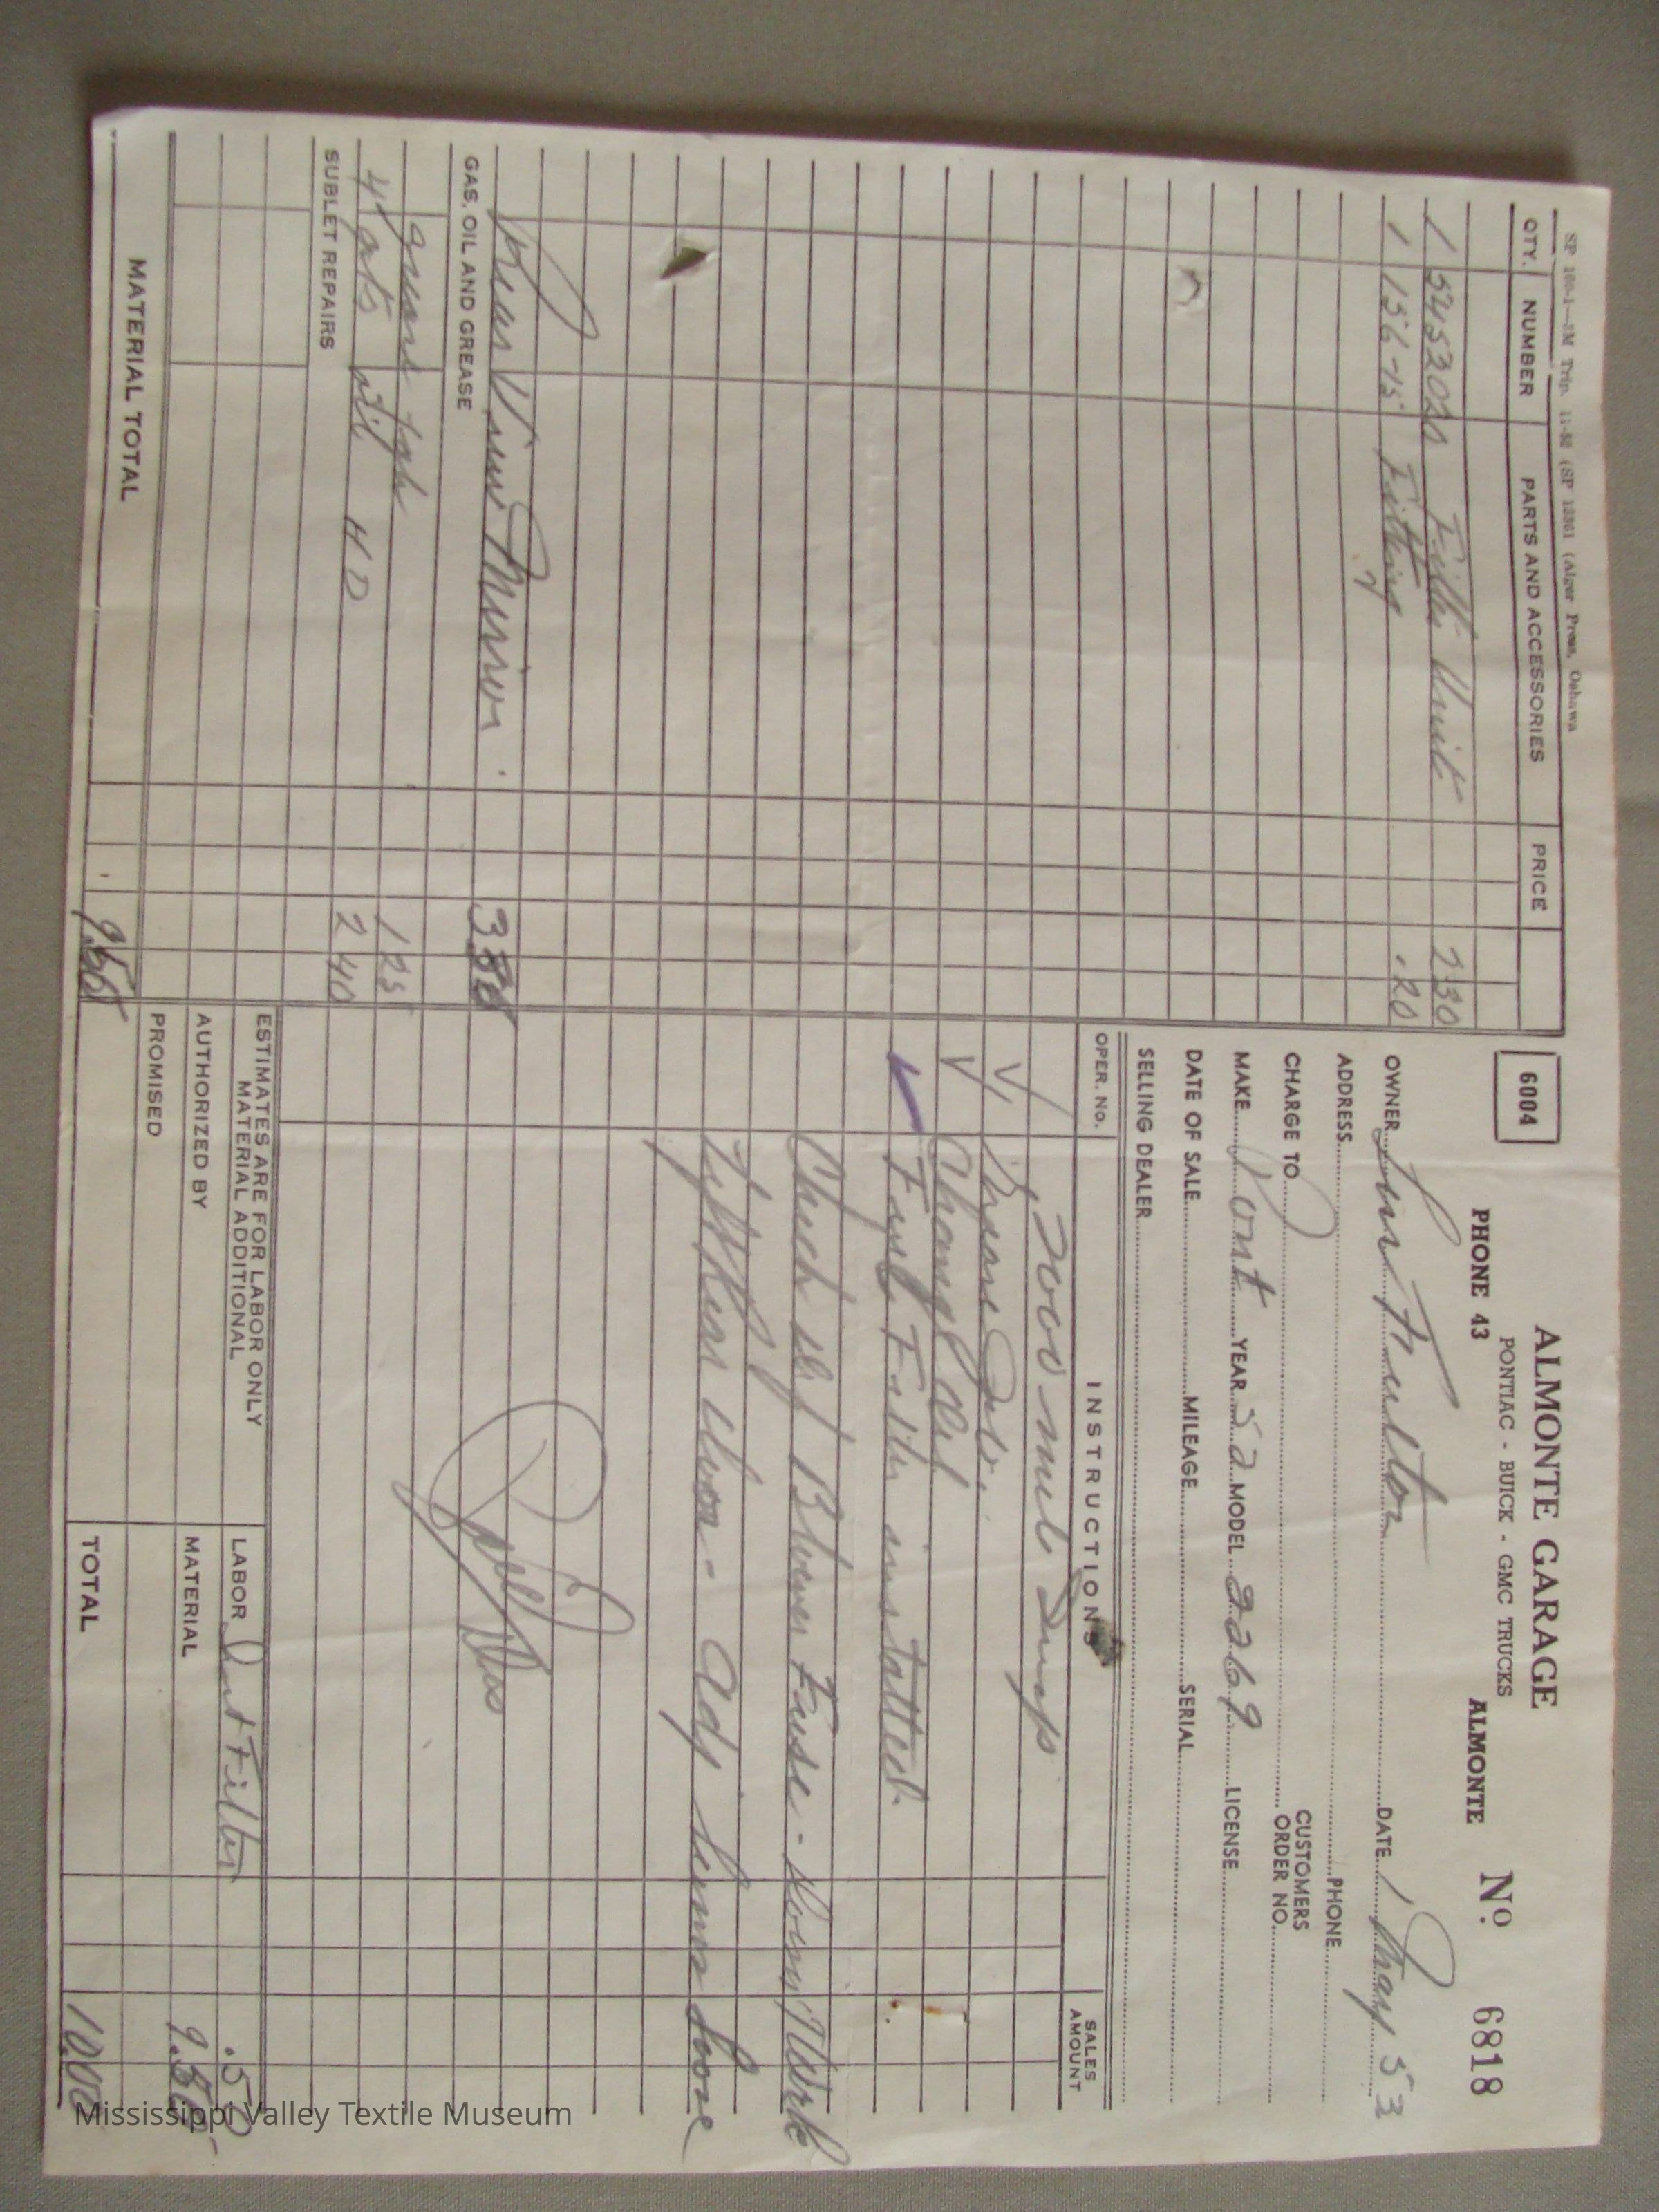 SP 100-1—3M Trip. 11-52 (SP 12361 (Alger Press, Oshawa
QTY. NUMBER PARTS AND ACCESSORIES PRICE
1 Filter Unit 2 30
1 156-15 Fitting .20
Rear View Mirror 3
GAS, OIL AND GREASE
grease job 1 25
4 qts oil HD 2 40
SUBLET REPAIRS
MATERIAL TOTAL
6004
ALMONTE GARAGE
PONTIAC - BUICK - GMC TRUCKS
PHONE 43 ALMONTE No. 6818
OWNER Jim Fulton DATE 1 May 53
ADDRESS PHONE
CHARGE TO CUSTOMERS ORDER NO.
MAKE Pont YEAR 52 MODEL 2269 LICENSE
DATE OF SALE MILEAGE SERIAL
SELLING DEALER
OPER. No. INSTRUCTIONS SALES AMOUNT
mile
Grease Job
Change Oil
Filter installed.
Check Blower Fuse - Work
Left Rear door - Adj
ESTIMATES ARE FOR LABOR ONLY
MATERIAL ADDITIONAL
AUTHORIZED BY
PROMISED
LABOR Filter .50
MATERIAL
TOTAL 10.00
Mississippi Valley Textile Museum